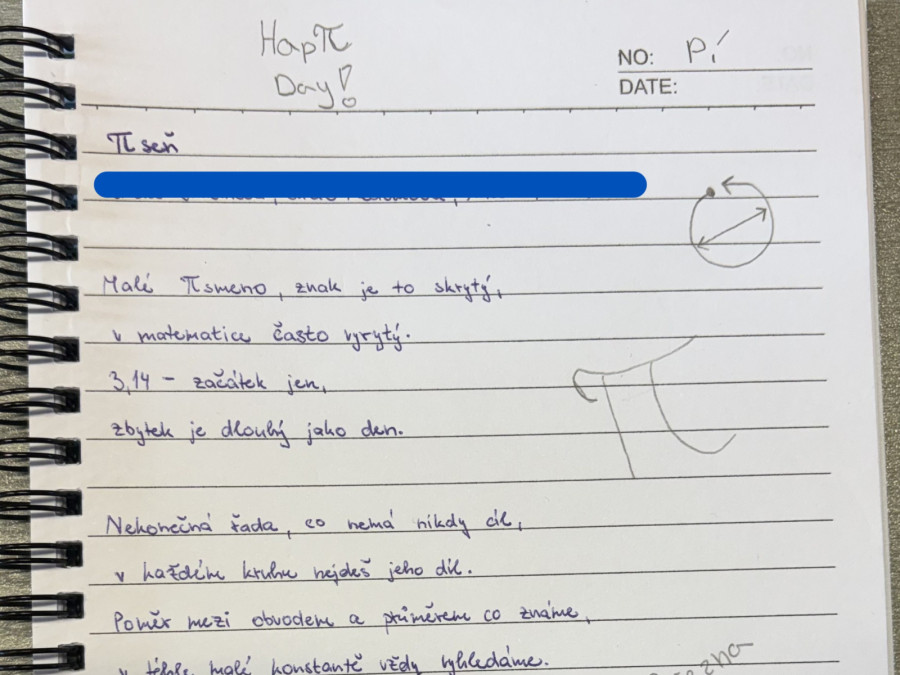 Hapπ
Day!
NO: Pí
DATE:
πseň
Malé πsmeno, znak je to skrytý,
v matematice často vyrytý.
3,14 – začátek jen,
zbytek je dlouhý jako den.
π
Nekonečná řada, co nemá nikdy cíl,
v každém kruhu najdeš jeho díl.
Poměr mezi obvodem a průměrem co známe,
v téhle malé konstantě vždy vyhledáme.